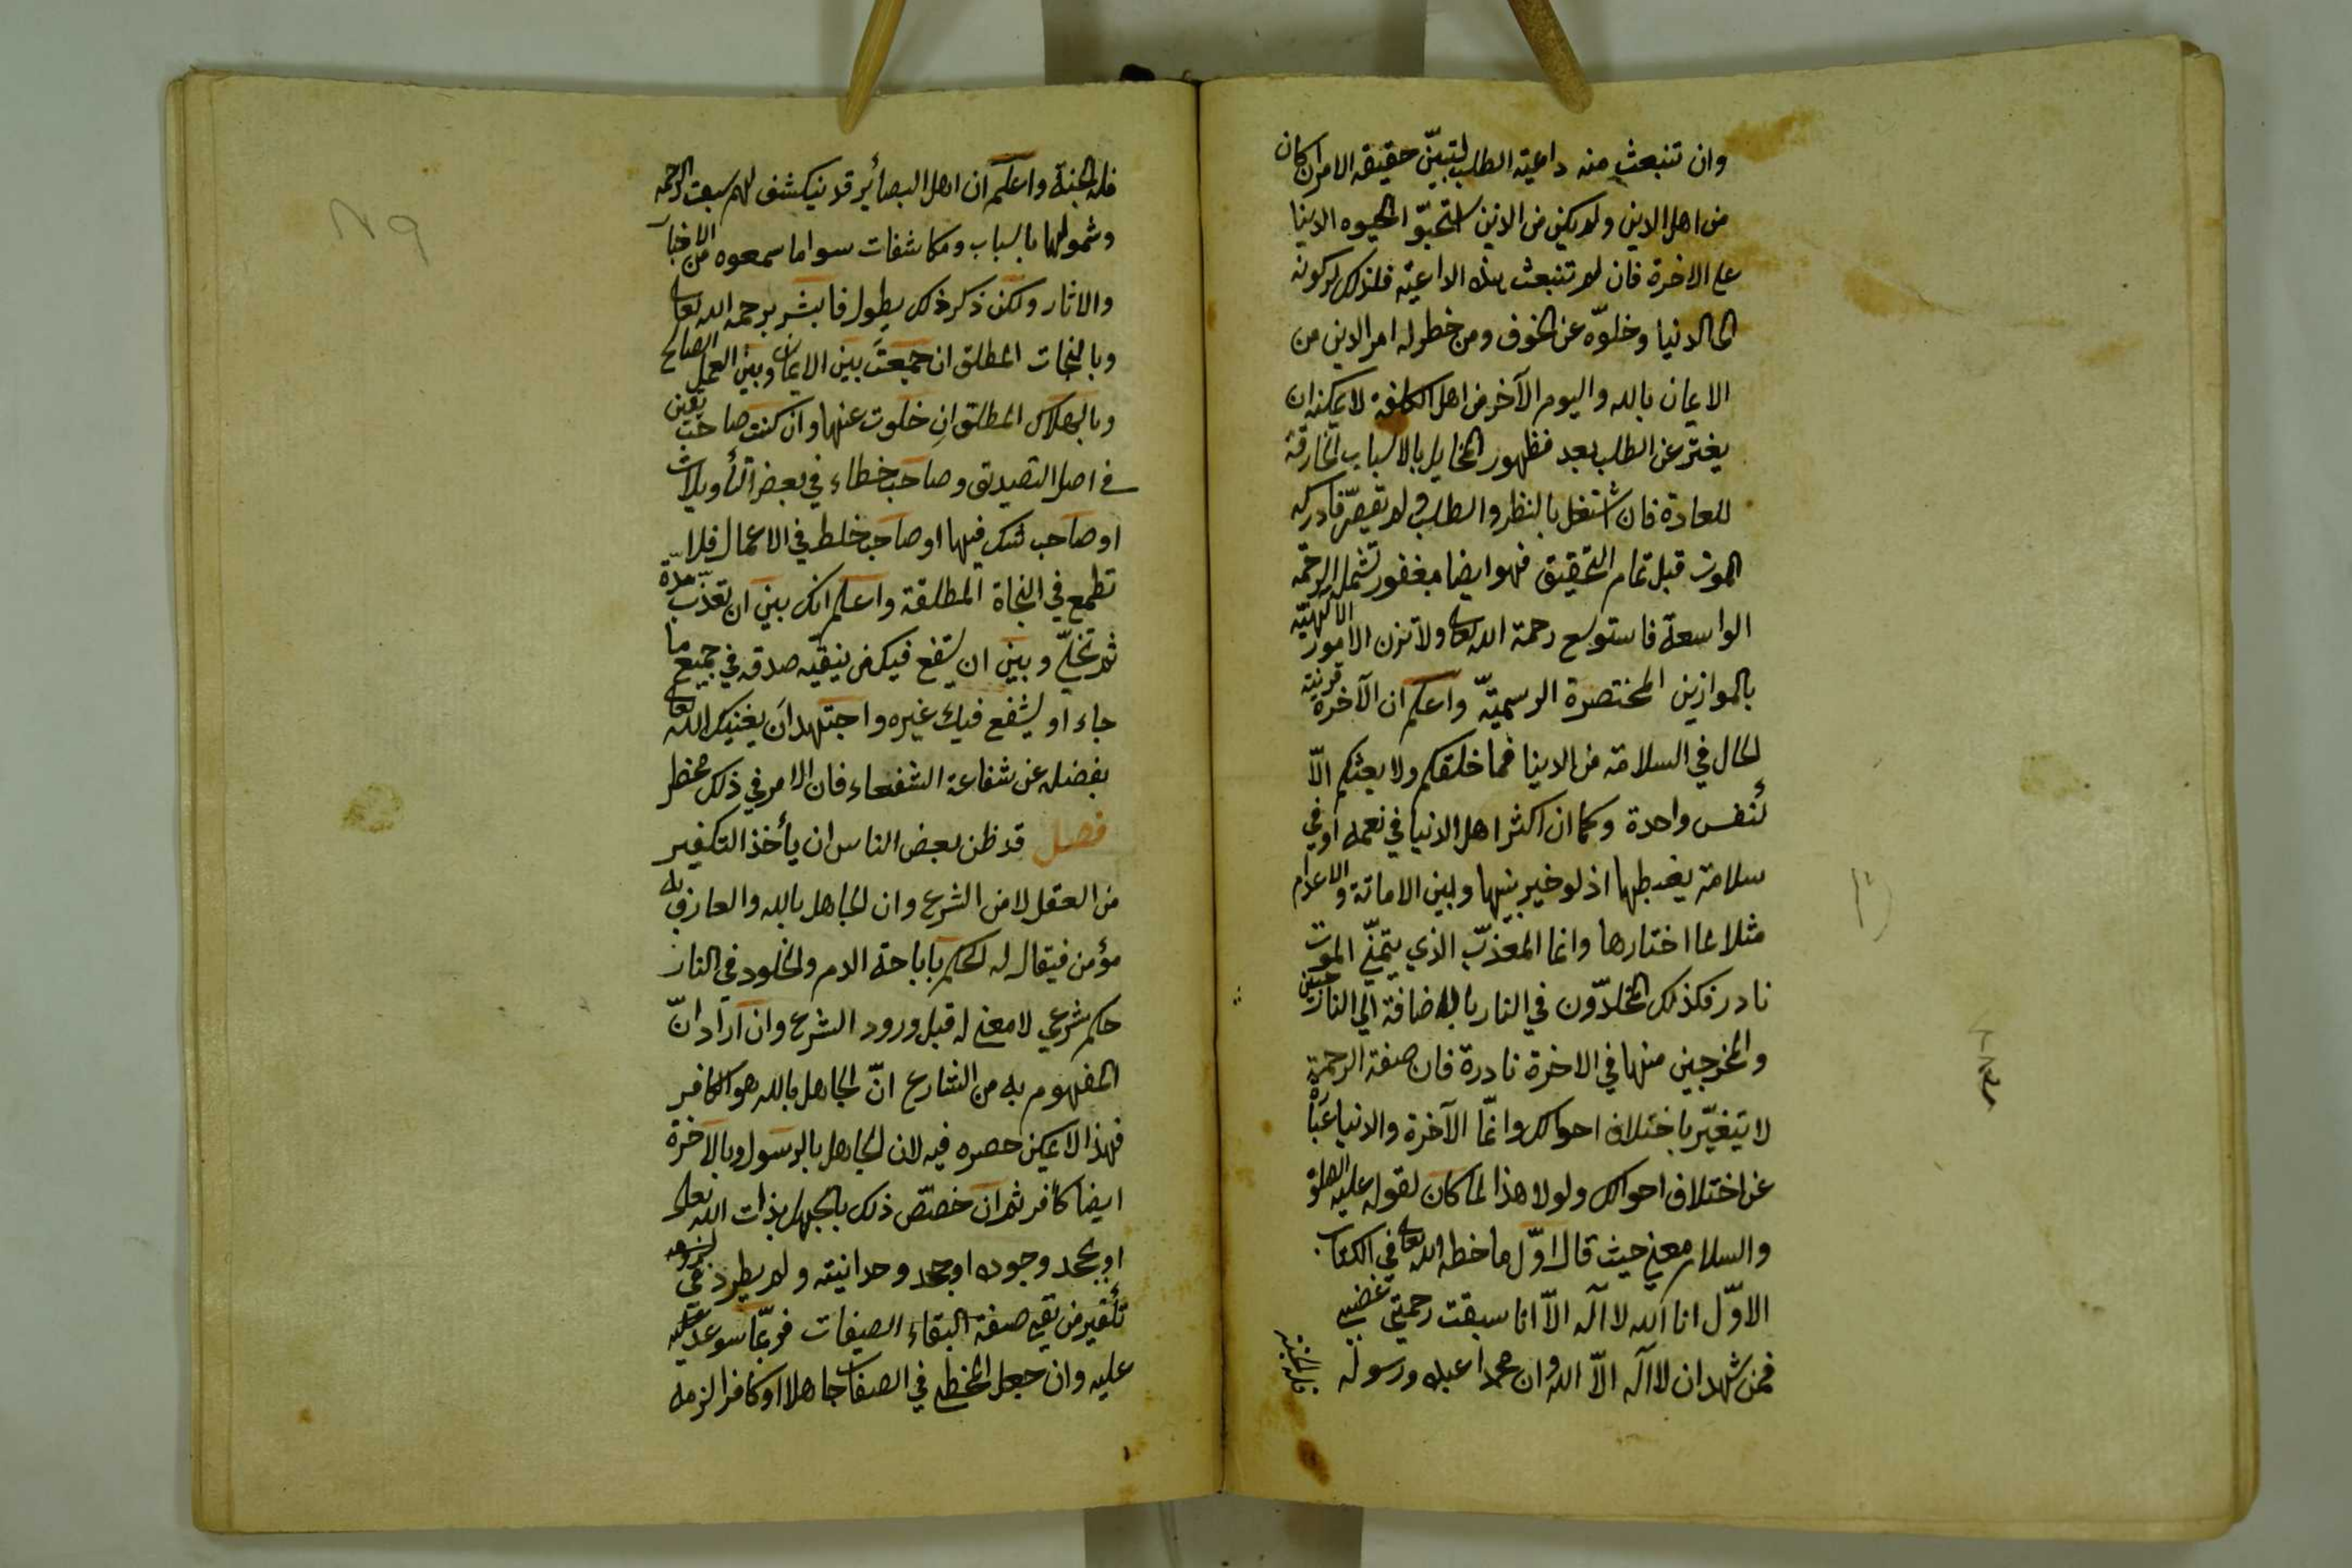 وان تنبعث منه داعية الطلب لتبيّن حقيقة الامر ان كان
من اهل الدين ولم يكن من الذين استحبّوا الحيوه الدنيا
على الاخرة فان لم تنبعث هذه الداعية فلذلك لركونه
الى الدنيا وخلوّه عن الخوف ومن خطر له امر الدين من
الايمان بالله واليوم الآخر من اهل الملة لا يمكنه ان
يفتر عن الطلب بعد ظهور المخايل بالاسباب الخارقة
للعادة فان اشتغل بالنظر والطلب ولم يقصّر فادركه
الموت قبل تمام التحقيق فهو ايضا مغفور تشمله الرحمة
الواسعة فاستوسع رحمة الله تعالى ولا تزن الامور الالهيّة
بالموازين المختصرة الرسميّة واعلم ان الآخرة قرينة
الحال في السلامة من الدنيا فما خلقكم ولا بعثكم الّا
كنفس واحدة وكما ان اكثر اهل الدنيا في نعمه او في
سلامة يغبطها اذ لو خير بينها وبين الاماتة والاعدام
مثلا لما اختارها وانما المعذّب الذي يتمنّى الموت
نادر فكذلك المخلدّون في النار بالاضافة الى الناجين
والمخرجين منها في الاخرة نادرة فان صفة الرحمة
لا يتغيّر باختلاف احوالك وانّما الآخرة والدنيا عبارة
عن اختلاف احوالك ولولا هذا لما كان لقوله عليه الصلوة
والسلام معنى حيث قال اوّل ما خطه الله تعالى في الكتاب
الاوّل انا الله لا اله الّا انا سبقت رحمتي غضبي
فمن شهد ان لا اله الّا الله وان محمدا عبده ورسوله
فله الجنة
فله الجنة واعلم ان اهل البصائر قد ينكشف لهم سبق الرحمة
وشمولها باسباب ومكاشفات سوا ما سمعوه من الاخبار
والاثار ولكن ذكر ذلك يطول فابشر برحمة الله تعالى
وبالنجات المطلق ان جمعتَ بين الايمان وبين العمل الصالح
وبالهلاك المطلق ان خلوت عنها وان كنت صاحب يقين
في اصل التصديق وصاحب خطاء في بعض التأويلات
او صاحب شك فيها او صاحب خلط في الاعمال فلا
تطمع في النجاة المطلقة واعلم انك بين ان تعذّب مدّة
ثم تخلّى وبين ان يشفع فيك من يتقيه صدقه في جميع ما
جاء او يشفع فيك غيره واجتهد ان يغنيك الله تعالى
بفضله عن شفاعة الشفعاء فان الامر في ذلك مخطر
فصل قد ظن بعض الناس ان يأخذ التكفير
من العقل لا من الشرع وان الجاهل بالله والعارف به
مؤمن فيقال له الحكم باباحة الدم والخلود في النار
حكم شرعي لا معنى له قبل ورود الشرع وان اراد انّ
المفهوم به من الشارع انّ الجاهل بالله هو الكافر
فهذا لا يمكن حصره فيه لان الجاهل بالرسول وبالآخرة
ايضا كافر ثم ان خصّص ذلك بالجهل بذات الله تعالى
او بجحد وجوده او جحد وحدانيته ولم يطرد في
عليه وان جعل المخطى في الصفات جاهلا او كافرا لزمه